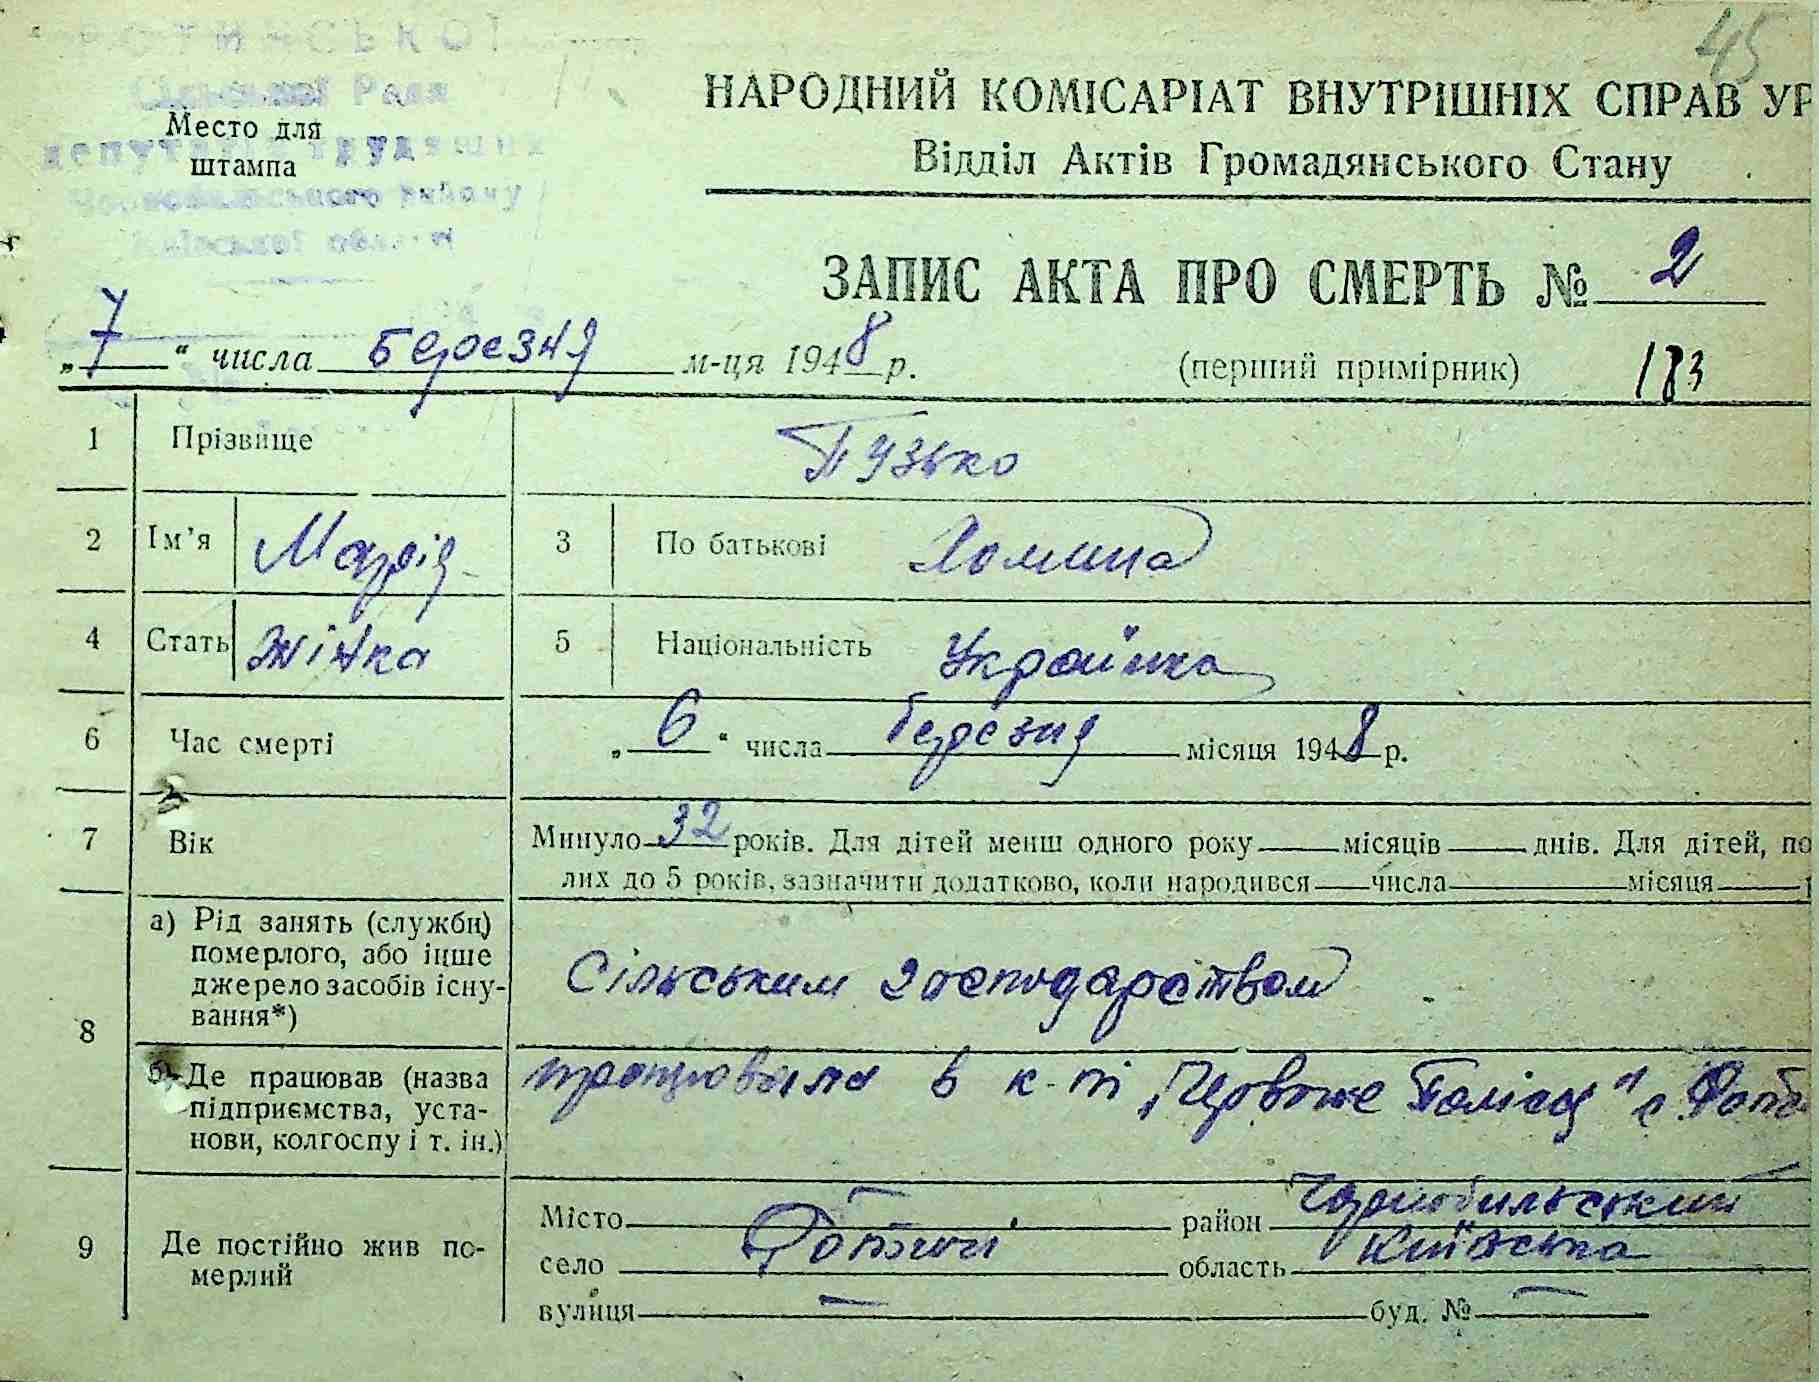 45
Сільської Ради
Место для
депутатів трудящих
штампа
Чорнобильського району
Київської області
НАРОДНИЙ КОМІСАРІАТ ВНУТРІШНІХ СПРАВ УР
Відділ Актів Громадянського Стану
ЗАПИС АКТА ПРО СМЕРТЬ № 2
„7“ числа березня м-ця 1948 р. (перший примірник) 183
1 Прізвище Пузько
2 Ім’я Марія 3 По батькові Хомина
4 Стать жінка 5 Національність Українка
6 Час смерті „6“ числа березня місяця 1948 р.
7 Вік Минуло 32 років. Для дітей менш одного року місяців днів. Для дітей, по
лих до 5 років, зазначити додатково, коли народився числа місяця
8 а) Рід занять (служби)
померлого, або інше
джерело засобів існу-
вання*) Сільським господарством
б) Де працював (назва
підприємства, уста-
нови, колгоспу і т. ін.) працювала в к-пі „Червоне Полісся" с.
9 Де постійно жив по-
мерлий
Місто — район Чорнобильський
село область Київська
вулиця — буд. № —